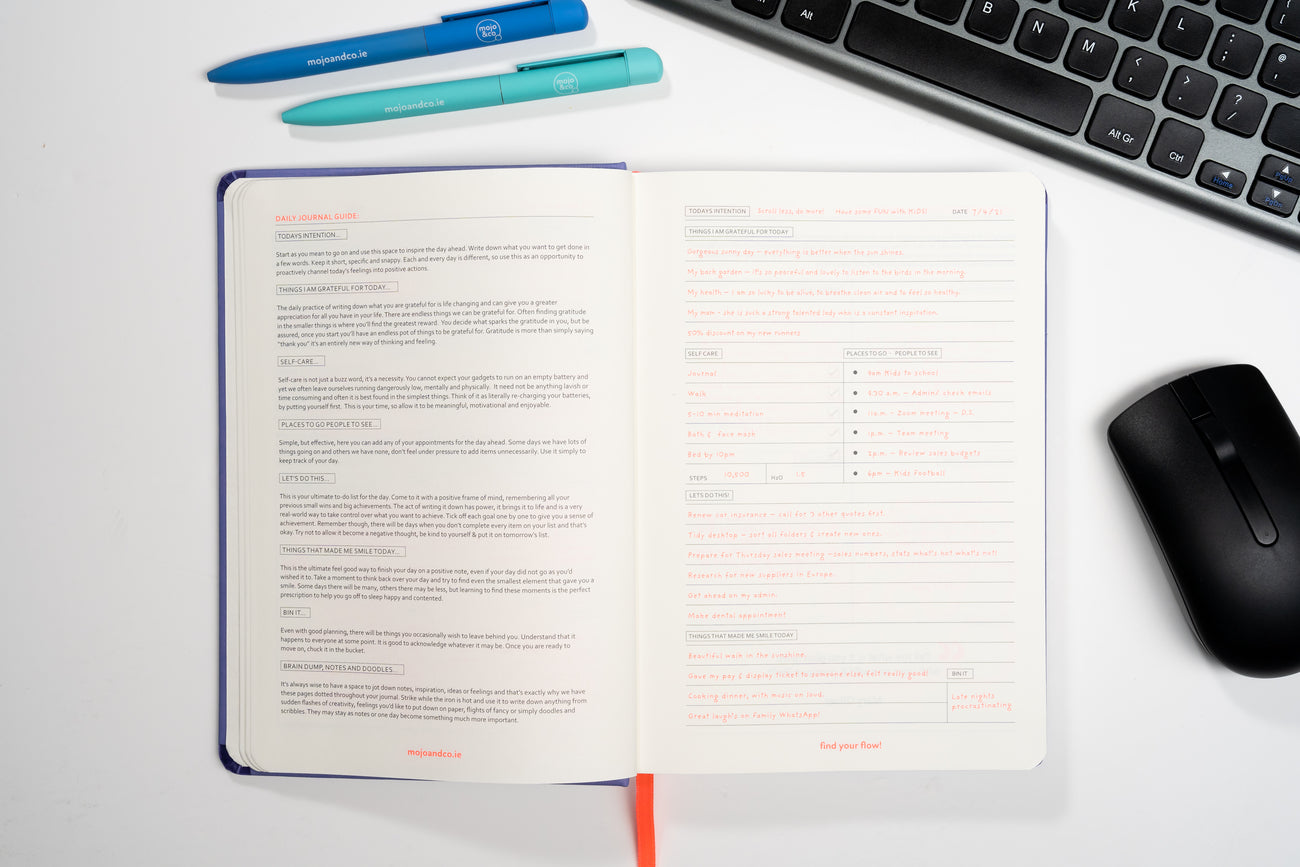 mojoandco.ie
mojo
&co
mojoandco.ie
mojo
&co
Alt
B
N
M
K
L
<
,
>
.
:
;
@
?
/
[
Alt Gr
Ctrl
Home
PgUp
PgDn
DAILY JOURNAL GUIDE:
TODAYS INTENTION...
Start as you mean to go on and use this space to inspire the day ahead. Write down what you want to get done in
a few words. Keep it short, specific and snappy. Each and every day is different, so use this as an opportunity to
proactively channel today's feelings into positive actions.
THINGS I AM GRATEFUL FOR TODAY...
The daily practice of writing down what you are grateful for is life changing and can give you a greater
appreciation for all you have in your life. There are endless things we can be grateful for. Often finding gratitude
in the smaller things is where you'll find the greatest reward. You decide what sparks the gratitude in you, but be
assured, once you start you'll have an endless pot of things to be grateful for. Gratitude is more than simply saying
"thank you" it's an entirely new way of thinking and feeling.
SELF-CARE...
Self-care is not just a buzz word, it's a necessity. You cannot expect your gadgets to run on an empty battery and
yet we often leave ourselves running dangerously low, mentally and physically. It need not be anything lavish or
time consuming and often it is best found in the simplest things. Think of it as literally re-charging your batteries,
by putting yourself first. This is your time, so allow it to be meaningful, motivational and enjoyable.
PLACES TO GO PEOPLE TO SEE...
Simple, but effective, here you can add any of your appointments for the day ahead. Some days we have lots of
things going on and others we have none, don't feel under pressure to add items unnecessarily. Use it simply to
keep track of your day.
LET'S DO THIS...
This is your ultimate to-do list for the day. Come to it with a positive frame of mind, remembering all your
previous small wins and big achievements. The act of writing it down has power, it brings it to life and is a very
real-world way to take control over what you want to achieve. Tick off each goal one by one to give you a sense of
achievement. Remember though, there will be days when you don't complete every item on your list and that's
okay. Try not to allow it become a negative thought, be kind to yourself & put it on tomorrow's list.
THINGS THAT MADE ME SMILE TODAY...
This is the ultimate feel good way to finish your day on a positive note, even if your day did not go as you'd
wished it to. Take a moment to think back over your day and try to find even the smallest element that gave you a
smile. Some days there will be many, others there may be less, but learning to find these moments is the perfect
prescription to help you go off to sleep happy and contented.
BIN IT...
Even with good planning, there will be things you occasionally wish to leave behind you. Understand that it
happens to everyone at some point. It is good to acknowledge whatever it may be. Once you are ready to
move on, chock it in the bucket.
BRAIN DUMP, NOTES AND DOODLES...
It's always wise to have a space to jot down notes, inspiration, ideas or feelings and that's exactly why we have
these pages dotted throughout your journal. Strike while the iron is hot and use it to write down anything from
sudden flashes of creativity, feelings you'd like to put down on paper, flights of fancy or simply doodles and
scribbles. They may stay as notes or one day become something much more important.
mojoandco.ie
TODAYS INTENTION Scroll less, do more! Have some FUN with KIDS! DATE 7/4/21
THINGS I AM GRATEFUL FOR TODAY
Gorgeous sunny day – everything is better when the sun shines.
My back garden – it's so peaceful and lovely to listen to the birds in the morning.
My health – I am so lucky to be alive, to breathe clean air and to feel so healthy.
My mam - she is such a strong talented lady who is a constant inspiration.
50% discount on my new runners
SELF CARE
Journal
Walk
5-10 min meditation
Bath & face mask
Bed by 10pm
STEPS 10,500 H2O 1.5
PLACES TO GO PEOPLE TO SEE
9am Kids to school
9.30 a.m. – Admin/ check emails
11a.m. - Zoom meeting – D.S.
1p.m. – Team meeting
2p.m. – Review sales budgets
6pm – Kids Football
LETS DO THIS!
Renew car insurance – call for 3 other quotes first.
Tidy desktop – sort all folders & create new ones.
Prepare for Thursday sales meeting –sales numbers, stats what's hot what's not!
Research for new suppliers in Europe.
Get ahead on my admin.
Make dental appointment
THINGS THAT MADE ME SMILE TODAY
Beautiful walk in the sunshine.
Gave my pay & display ticket to someone else, felt really good!
Cooking dinner, with music on loud.
Great laugh's on Family WhatsApp!
BIN IT
Late nights
procrastinating
find your flow!